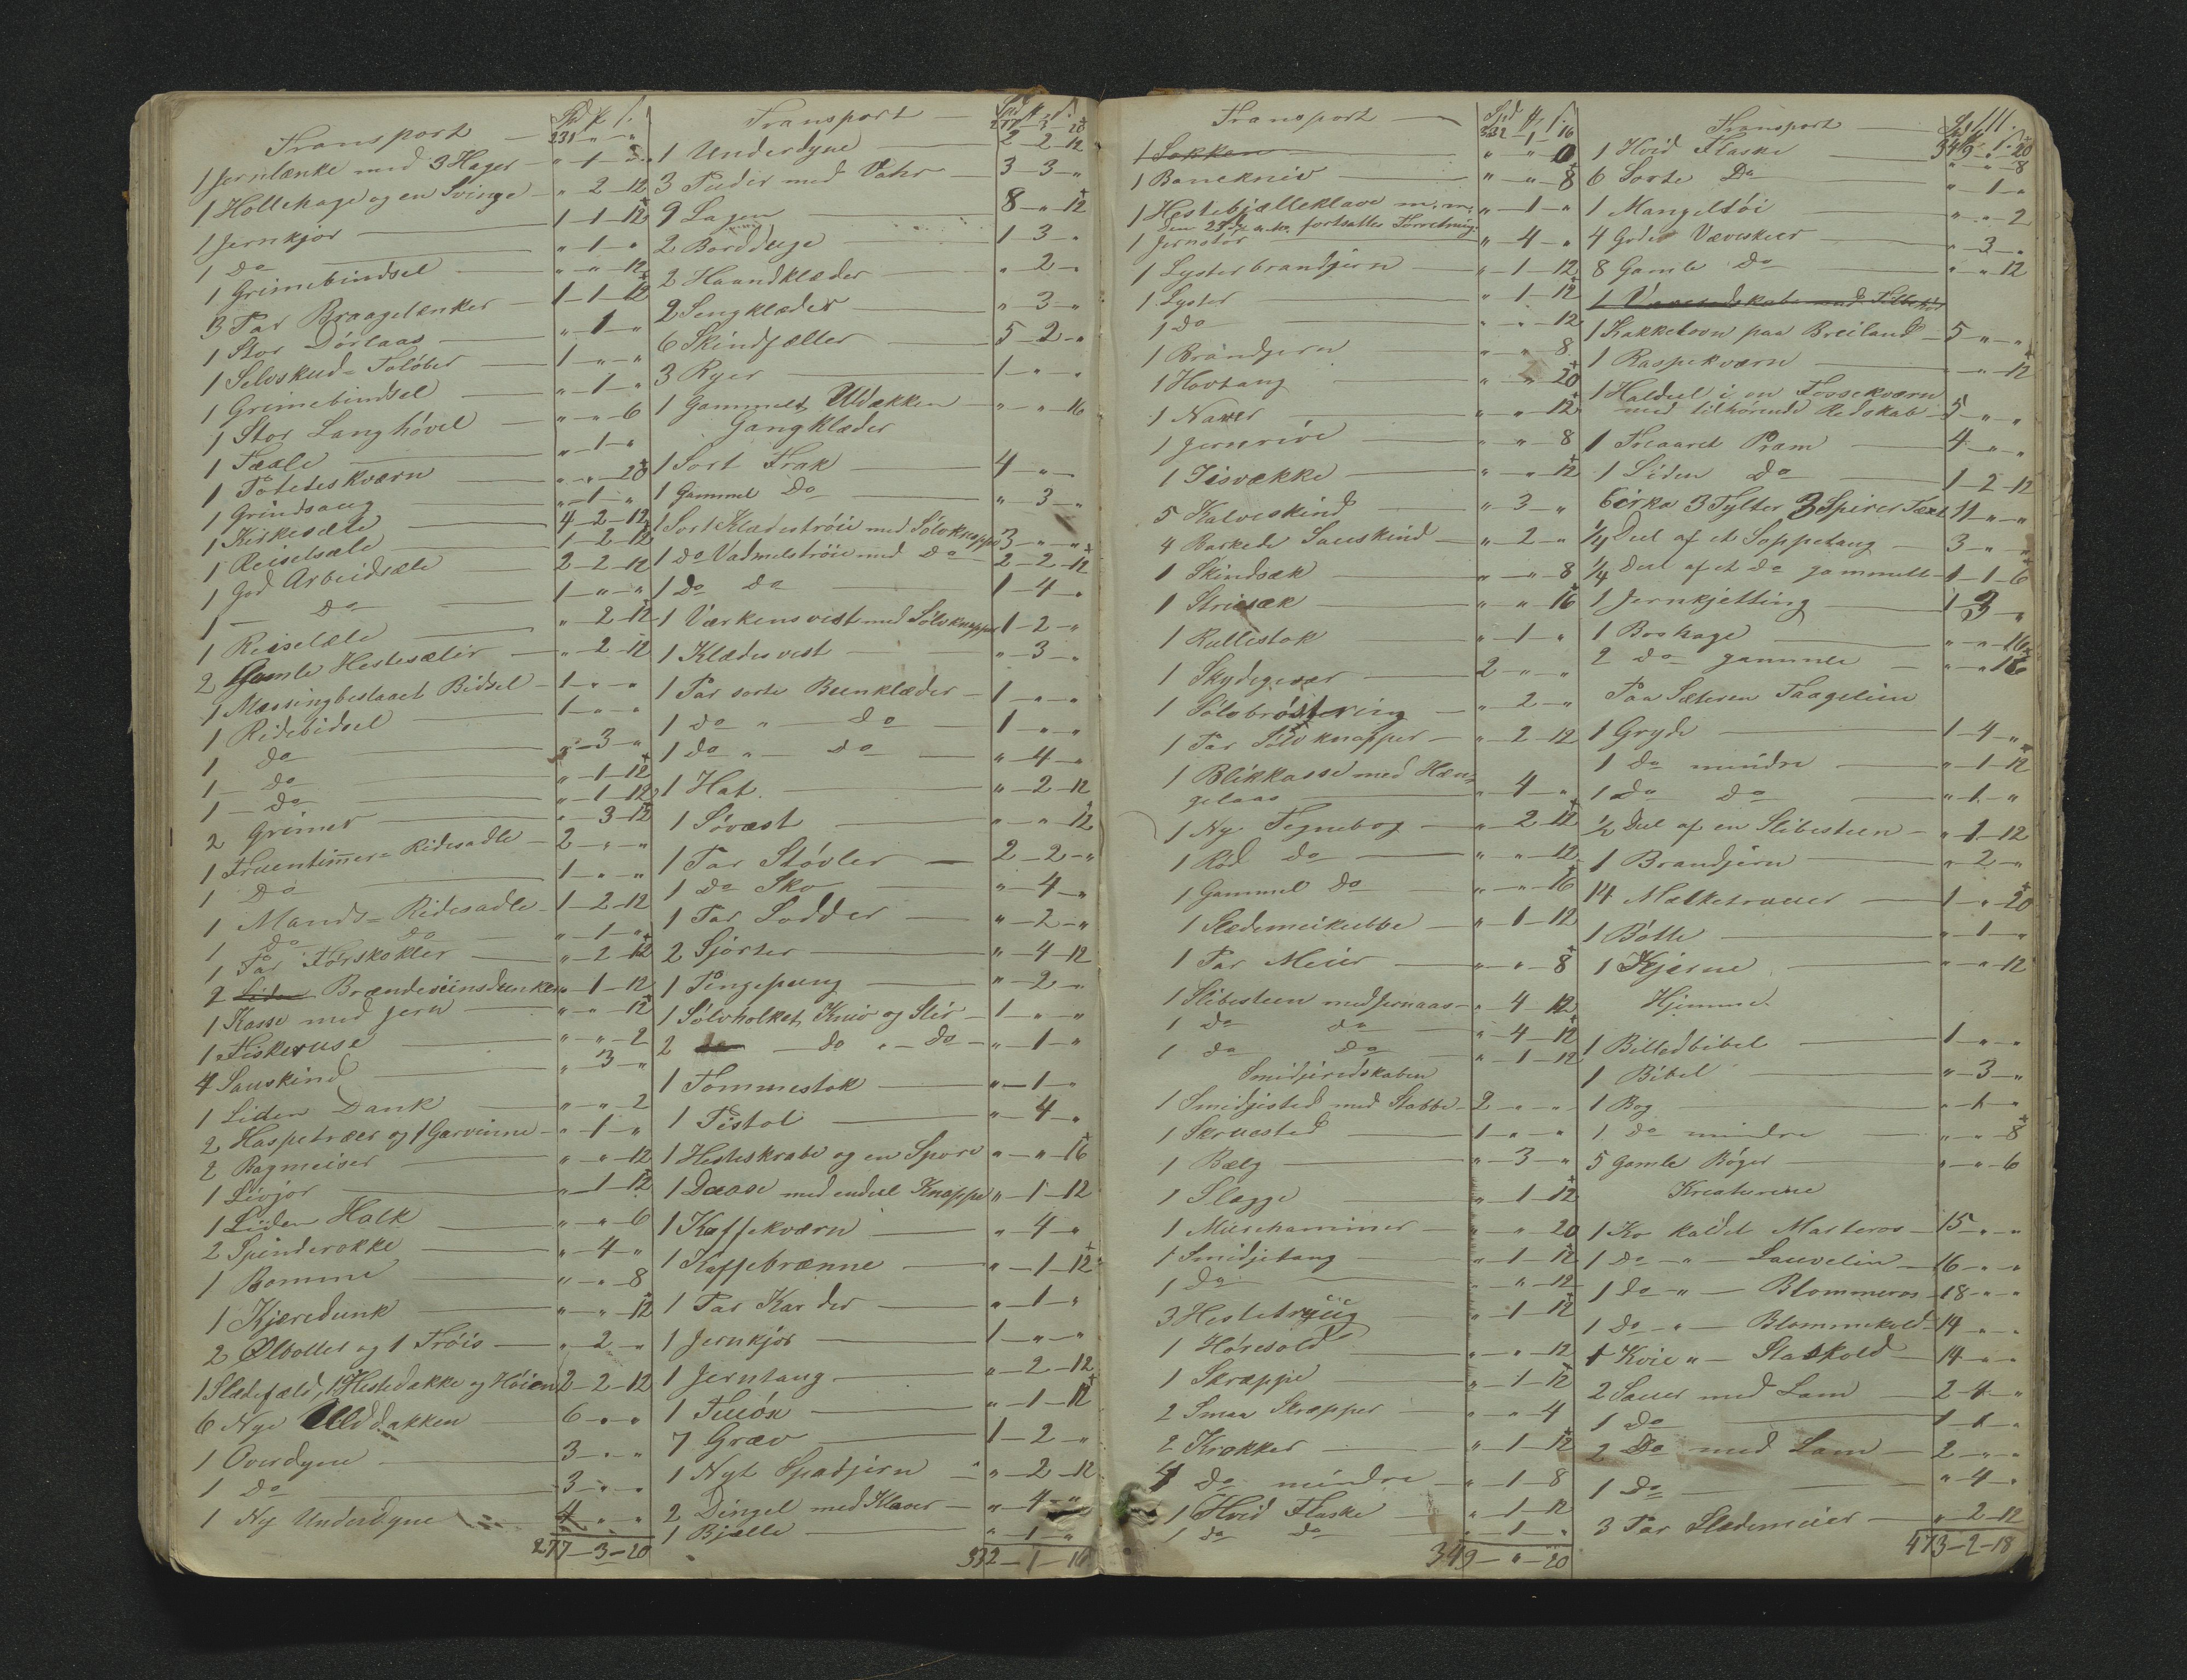 Transport — Spd ƒ s.
231 „ „
1 Jernlænke med 3 Hager — „ 1 „
1 Hollehage og en Svinge — „ 2 12
1 Jernkjør — 1 1 12
1 Do — „ 1 „
1 Grimebindsel — „ „ 12
3 Par Braagelænker — 1 1 12
1 Stor Dörlaas — „ 1 „
1 Selvskud-Foløber — 1 „ „
1 Grimebindsel — „ 1 „
1 Stor Langhövel — „ „ 6
1 Fæle — „ 1 „
1 Poteteskværn — „ „ 20
1 Grindsaug — „ 1 „
1 Kirkesæle — 4 2 12
1 Reisesæle — 1 2 12
1 God Arbeidsæle — 2 2 12
1 — Do — 1 „ „
1 Reisesæle — „ 2 12
2 Gamle Hestesæler — „ 2 12
1 Messingbeslaaet Bidsel — 1 „ „
1 Ridebidsel — 1 „ „
1 Do — „ 3 „
1 Do — „ 1 12
1 Do — „ 1 12
2 Grimer — „ 3 12
1 Fruentimer-Ridesadle — 2 „ „
1 Do — 1 „ „
1 Mands-Ridesadle — 1 2 12
1 Do Do — „ 1 „
1 Par Förskokler — „ 2 12
2 Brændeviinsdunker „ 1 12
1 Kasse med Jern — „ „ 12
1 Fiskeruse — „ „ 2
4 Sauskind — „ 3 „
1 Liden Dank — „ „ 2
2 Haspetræer og 1 Garvinne — „ 1 „
2 Bagmeiser — „ „ 12
1 Livjor — „ 1 12
1 Liden Halk — „ „ 6
2 Spinderokke — „ 4 „
1 Bomme — „ „ 8
1 Kjæredunk — „ „ 12
2 Ølboller og 1 Tröis — „ 2 „
1 Slædefæld, 1 Hestedække og Höien 2 2 12
6 Nye Ulddækken — 6 „ „
1 Overdyne — 3 „ „
1 Do — 3 „ „
1 Ny Underdyne — 4 „ „
277 — 3 — 20
Transport — Spd ƒ s.
277 3 20
1 Underdyne — 2 2 12
3 Puder med Vahr — 3 3 „
9 Lagen — 8 „ 12
2 Bordduge — 1 3 „
2 Haandklæder — „ 2 „
2 Sengklæder — „ 3 „
6 Skindfæller — 5 2 „
3 Ryer — 1 „ „
1 Gammelt Uldækken — „ „ 16
Gangklæder
1 Sort Frak — 4 „ „
1 Gammel Do — „ 3 „
1 Sort Klædestrøie med Sölvknapper 3 „ „
1 Do Vadmelströie med Do — 2 2 12
1 Do Do — 1 4 „
1 Værkensvest med Sölvknapper 1 2 „
1 Klædesvest — „ 3 „
1 Par sorte Beenklæder — 1 „ „
1 Do „ Do — 1 „ „
1 Do „ Do — „ 4 „
1 Hat — „ 2 12
1 Sövæst — „ „ 12
1 Par Stövler — 2 2 „
1 Do Sko — „ 4 „
1 Par Lodder — „ 2 „
2 Sjorter — „ 4 12
1 Pengepung — „ 2 „
1 Sölvholket Kniv og Slir — 1 „ „
2 — do „ Do — „ 1 „
1 Tommestok — „ 1 „
1 Pistol — „ 4 „
1 Hesteskrabe og en Spore „ „ 16
1 Daase med endeel Knapper „ 1 12
1 Kaffekværn — „ 4 „
1 Kaffebrænne — „ 1 12
1 Par Karder — „ 1 „
1 Jernkjör — 1 „ „
1 Jerntang — „ 2 12
1 Tuöx — „ 1 12
7 Græv — 1 2 „
1 Nyt Spadjern — „ 2 12
2 Dingel med Klaver — „ 4 „
1 Bjelle — „ 1 „
332 — 1 — 16
Transport — Spd ƒ s.
332 1 16
1 Banckniv — „ „ 8
1 Hestebjælleklave m. m. „ 1 „
Den 23de a. k. fortsattes Forretning:
1 Jernstör — „ 4 „
1 Lysterbrandjern — „ 1 12
1 Lyster — „ 1 12
1 Do — „ „ 12
1 Brandjern — „ „ 8
1 Hovtang — „ „ 20
1 Naver — „ „ 12
1 Jernrive — „ „ 8
1 Jisvække — „ „ 12
5 Kalveskind — „ 3 „
4 Barkede Sauskind — „ 2 „
1 Skindsæk — „ „ 8
1 Striesæk — „ „ 16
1 Rullestok — „ 1 „
1 Skydegevær — 2 „ „
1 Sölvbröstring — „ 2 „
1 Par Sölvknapper — „ 2 12
1 Blikkasse med Hæn-
gelaas — „ 4 „
1 Ny Tegnebog — „ 2 12
1 Röd Do — „ „ 12
1 Gammel Do — „ „ 16
1 Slædemeikubbe — „ 1 12
1 Par Meier — „ „ 8
1 Slibesteen med Jernaas — „ 4 12
1 Do Do — „ 4 12
1 Do Do — „ 1 12
Smidjeredskaben
1 Smidjested med Stabbe — 2 „ „
1 Skruested — 1 „ „
1 Bælg — „ 3 „
1 Slægge — „ 1 12
1 Muurhammer — „ „ 20
1 Smidjetang — „ 1 12
1 Do — „ „ 12
3 Hestetryug — „ 1 12
1 Höresold — „ „ 12
1 Skræppe — „ 1 12
2 Smaa Skræpper — „ „ 4
2 Krokker — „ 1 12
4 Do mindre — „ 1 8
1 Hvid Flaske — „ 1 12
1 do do — „ 1 „
349 — „ — 20
111.
Transport — Spd ƒ s.
349 „ 20
1 Hvid Flaske — „ „ 8
6 Sorte Do — „ 1 „
1 Mangeltöi — „ „ 2
4 Gode Væveskeer — „ 3 „
8 Gamle Do — „ „ 12
1 Kakkelovn paa Breiland — 5 „ „
1 Raspekværn — „ „ 12
1 Haldeel i en Fossekværn
med tilhörende Redskab — 5 „ „
1 Treaaret Pram — 4 „ „
1 Liden Do — 1 2 12
Cirka 3 Tylter 3 Spirer Tært 11 „ „
1/4 Deel af et Soppetaug — 3 „ „
1/4 Deel af et Do gammelt — 1 1 6
1 Jernkjetting — 1 3 „
1 Boshage — „ „ 16
2 Do gammle — „ „ 16
Paa Sæteren Taagelien
1 Gryde — 1 4 „
1 Do mindre — „ 1 12
1 Do Do — „ 1 „
1/2 Deel af en Slibesteen — „ 1 12
1 Brandjern — „ 2 „
14 Mælketrauer — 1 „ 20
1 Bötte — „ 1 „
1 Kjerne — „ „ 12
Hjemme
1 Billedbibel — 1 „ „
1 Bibel — „ 3 „
1 Bog — „ 1 „
1 Do mindre — „ „ 8
5 Gamle Böger — „ „ 6
Kreaturene
1 Ko kaldet Masteros — 15 „ „
1 Do „ Sauvelin — 16 „ „
1 Do „ Blommeros — 18 „ „
1 Do „ Blommekold — 14 „ „
1 Kvie „ Staskold — 14 „ „
2 Sauer med Lam — 2 4 „
1 Do — 1 1 „
2 Do med Lam — 2 „ „
1 Do — „ 4 „
3 Par Slædemeier — „ 2 12
473 — 2 — 18